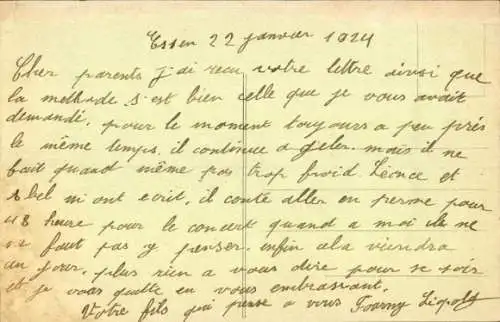 Essen 22 janvier 1924
Cher parents j'ai recu votre lettre ainsi que
la méthode s'est bien celle que je vous avait
demandé. pour le moment toujours a peu prés
le même temps. il continue a geler. mais il ne
fait quand même pas trop froid. Léonce et
Abel m'ont ecrit, il conte aller en perme pour
48 heure pour le concert quand a moi il ne
me faut pas y penser. enfin ala viendra
un jour. plus rien a vous dire pour se soir
et je vous quitte en vous embrassant.
Votre fils qui pense a vous Fourny Léopold